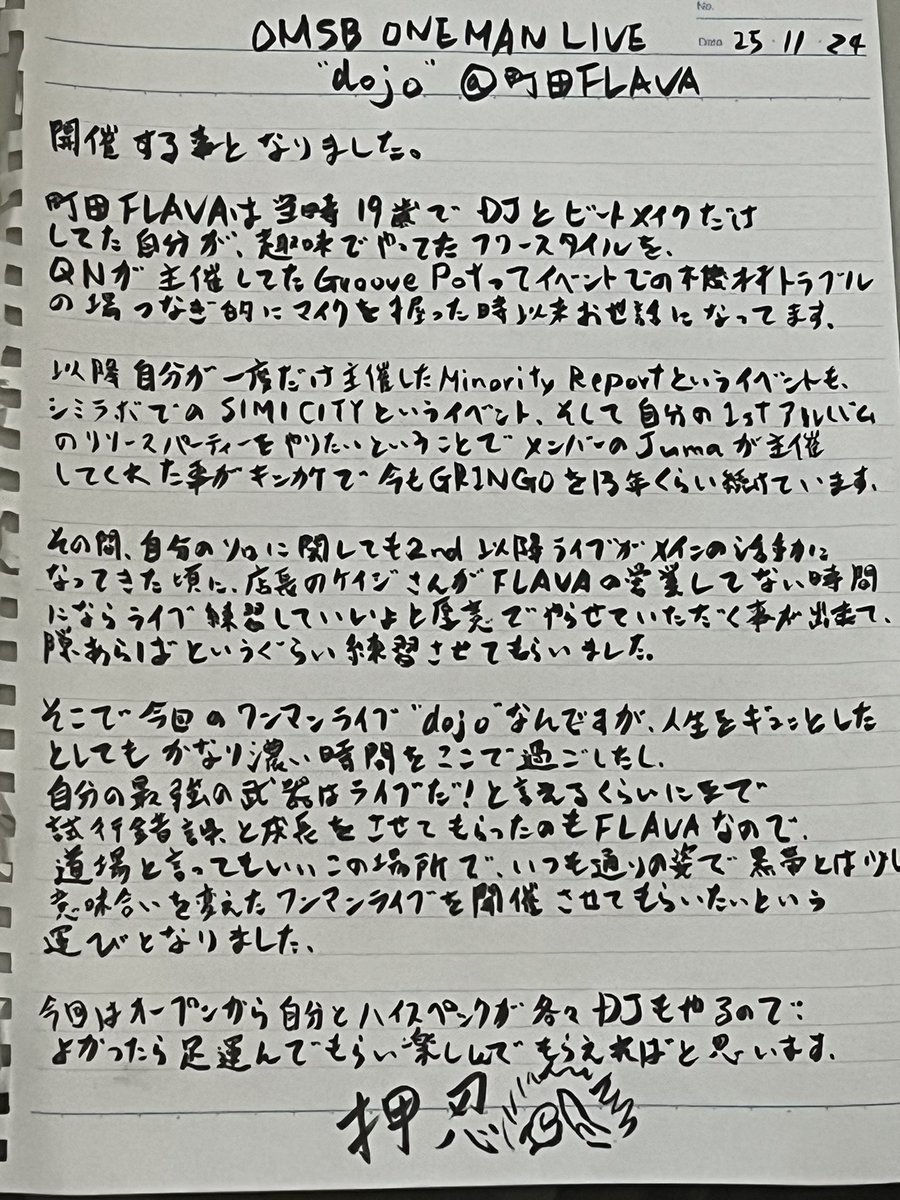 No.
Date 25・11・24
OMSB ONEMAN LIVE
"dojo" @町田FLAVA
開催する事となりました。
町田FLAVAは当時19歳でDJとビートメイクだけ
してた自分が、趣味でやってたフリースタイルを、
QNが主催してたGroove Potってイベントでの機材トラブル
の場つなぎ的にマイクを握った時以来お世話になってます。
以降自分が一度だけ主催したMinority Reportというイベントも、
シミラボでのSIMICITYというイベント、そして自分の1stアルバム
のリリースパーティーをやりたいということでメンバーのJumaが主催
してくれた事がキッカケで今もGRINGOを13年くらい続けています。
その間、自分のソロに関しても2nd以降ライブがメインの活動に
なってきた頃に、店長のケイジさんがFLAVAの営業してない時間
にならライブ練習していいよと厚意でやらせていただく事が出来て、
隙あらばというぐらい練習させてもらいました。
そこで今回のワンマンライブ"dojo"なんですが、人生をギュッとした
としてもかなり濃い時間をここで過ごしたし、
自分の最強の武器はライブだ!と言えるくらいにまで
試行錯誤と成長をさせてもらったのもFLAVAなので、
道場と言ってもいいこの場所で、いつも通りの姿で黒帯とは少し
意味合いを変えたワンマンライブを開催させてもらいたいという
運びとなりました。
今回はオープンから自分とハイスペックが各々DJもやるので
よかったら足運んでもらい楽しんでもらえればと思います。
押忍